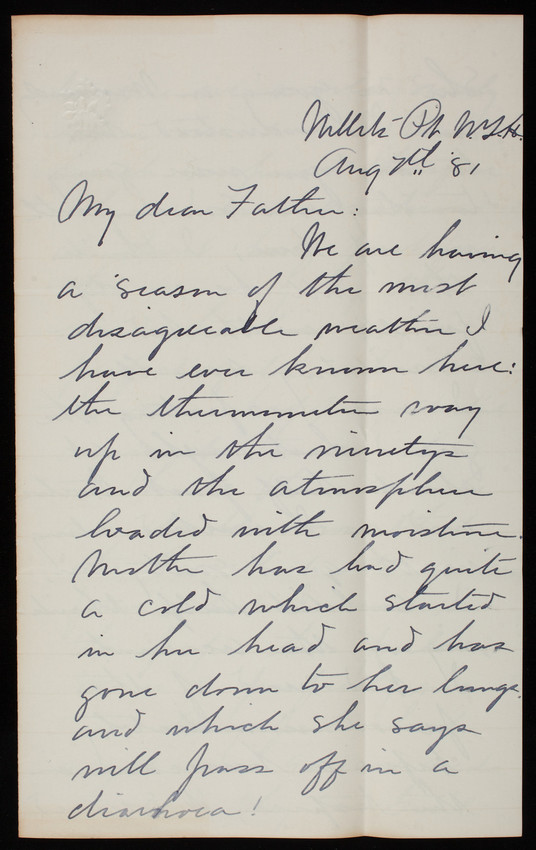 Willets Pt. N.Y.H.
Aug 7th '81
My dear Father:
We are having
a season of the most
disagreeable weather I
have ever known here:
the thermometer way
up in the ninetys
and the atmosphere
loaded with moisture.
Mother has had quite
a cold which started
in her head and has
gone down to her lungs.
and which she says
will pass off in a
diarrhoea!